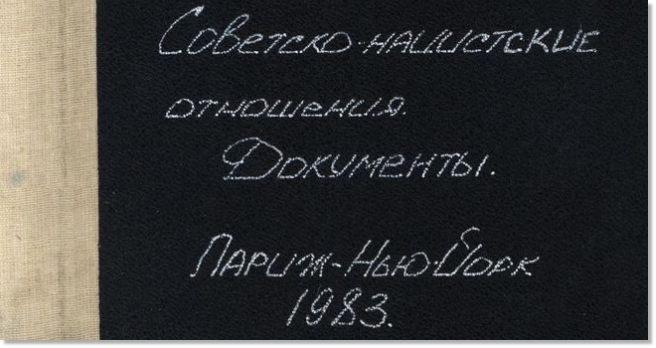 Советско-нацистские
отношения.
Документы.
Париж-Нью-Йорк
1983.